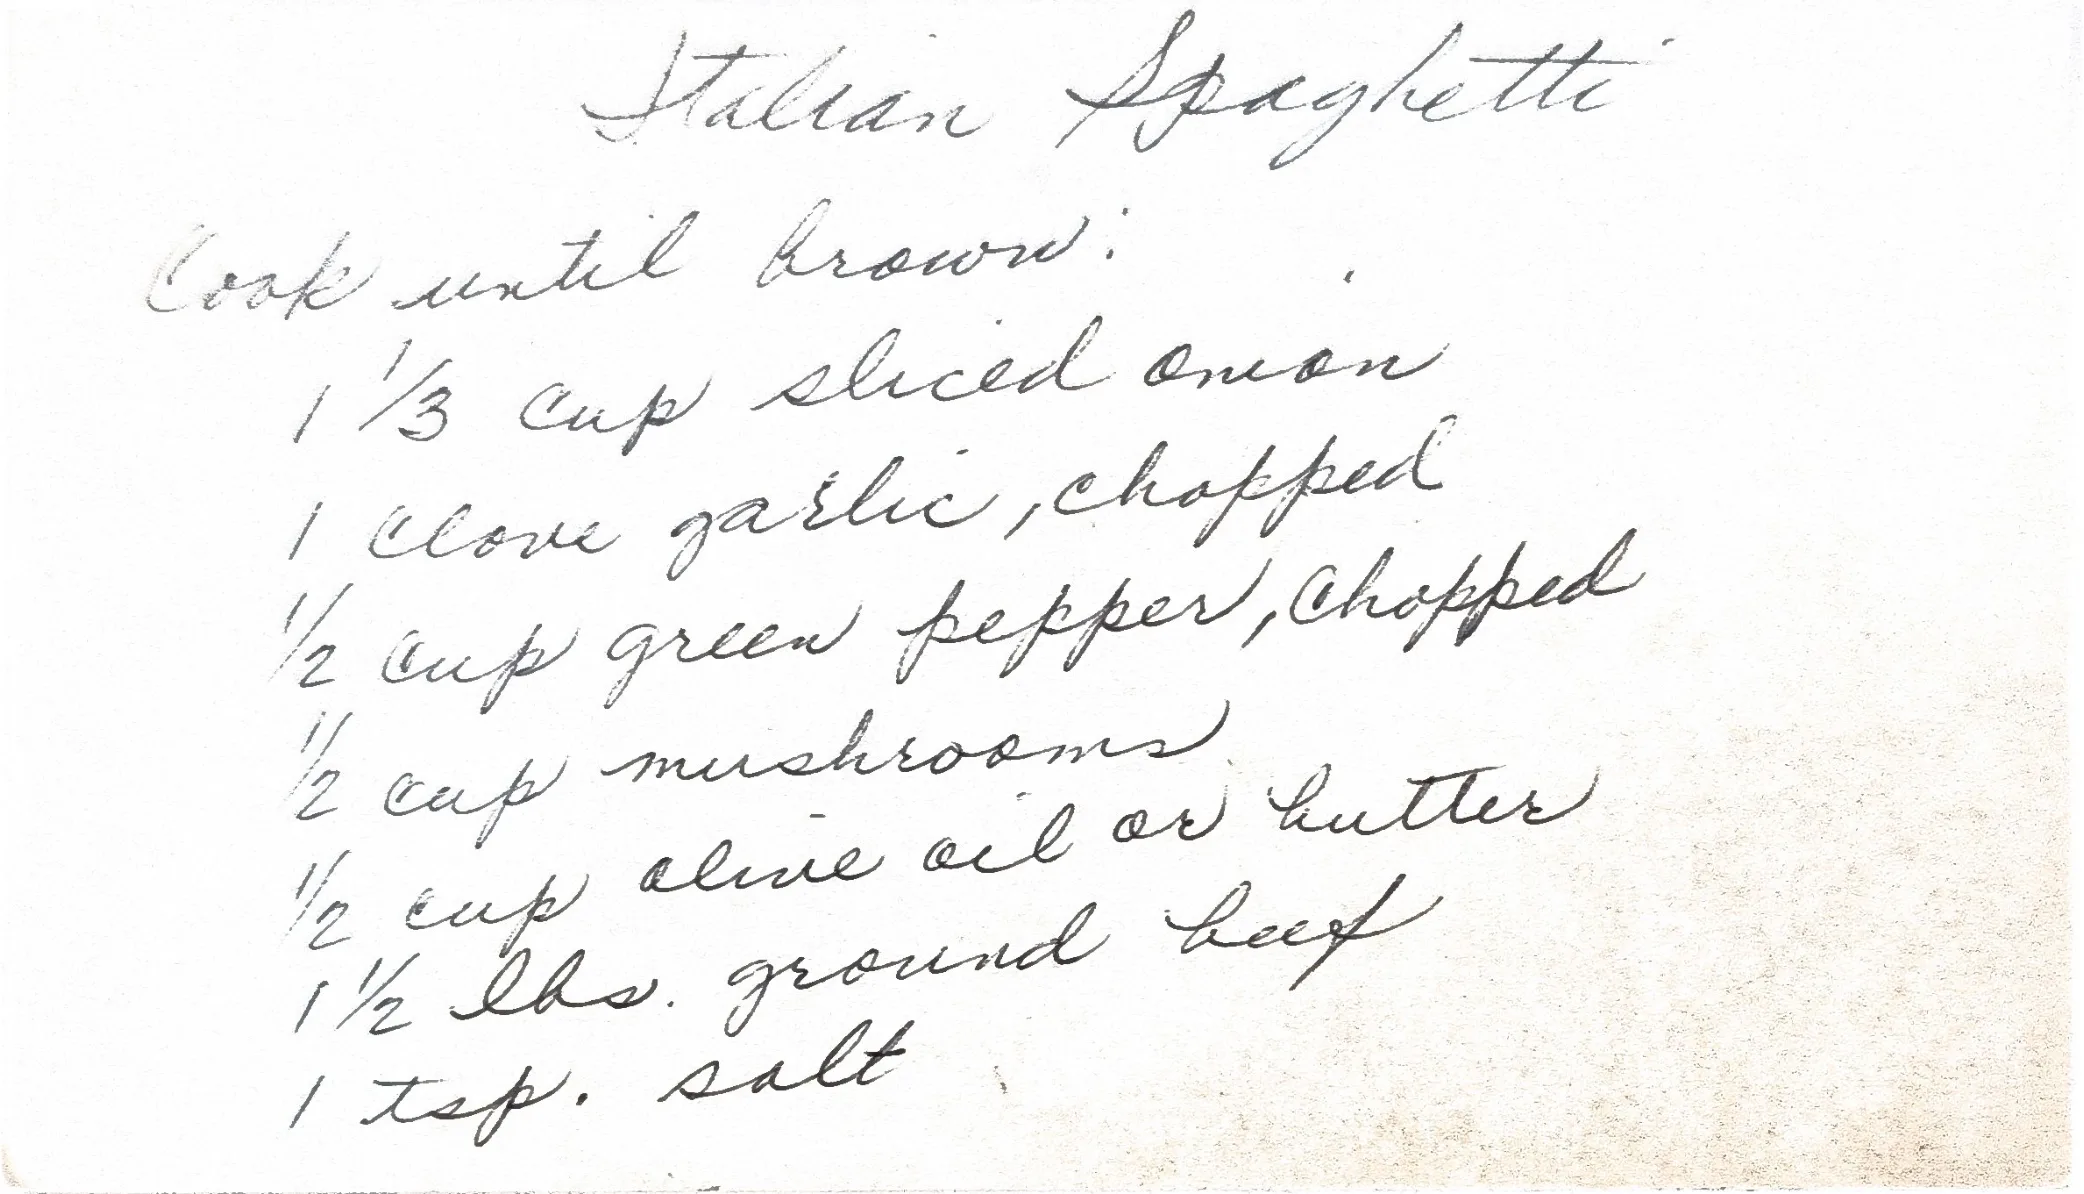 Italian Spaghetti
Cook until brown:
1 1/3 cup sliced onion
1 clove garlic, chopped
1/2 cup green pepper, chopped
1/2 cup mushrooms
1/2 cup olive oil or butter
1 1/2 lbs. ground beef
1 tsp. salt